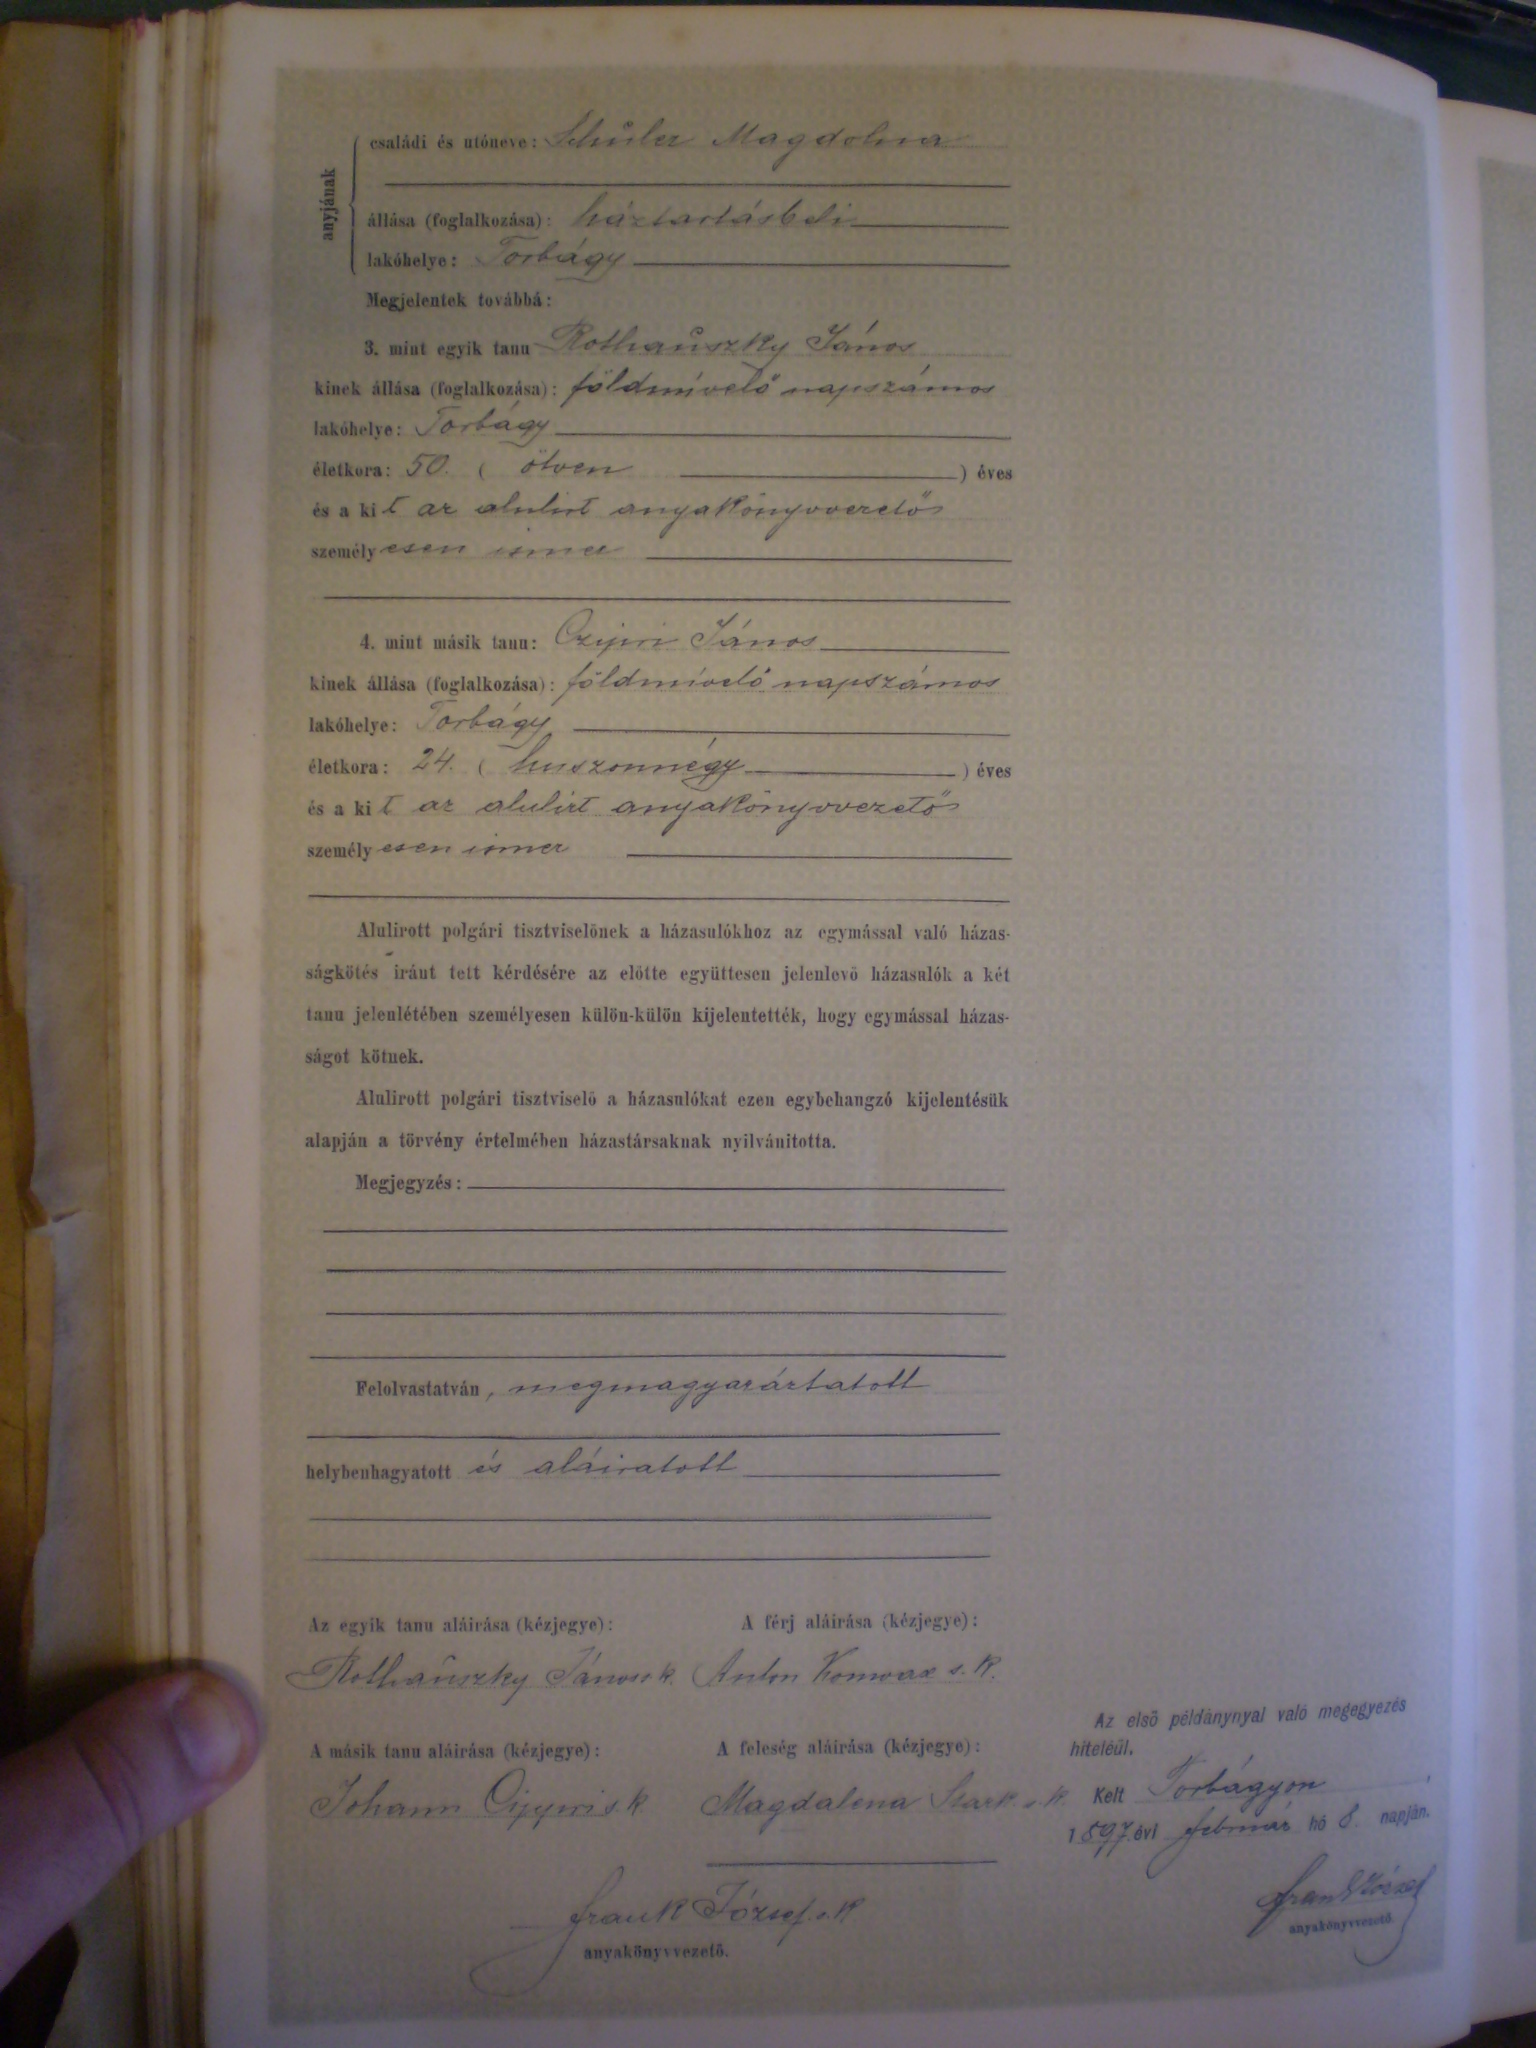 anyjának
családi és utóneve: Schüler Magdolna
állása (foglalkozása): háztartásbeli
lakóhelye: Torbágy
Megjelentek továbbá:
3. mint egyik tanu Rothauszky János
kinek állása (foglalkozása): földmívelő napszámos
lakóhelye: Torbágy
életkora: 50. ( ötven ) éves
és a kit az alulirt anyakönyvvezető
személyesen ismer
4. mint másik tanu: Czipri János
kinek állása (foglalkozása): földmívelő napszámos
lakóhelye: Torbágy
életkora: 24. ( huszonnégy ) éves
és a kit az alulirt anyakönyvvezető
személyesen ismer
Alulirott polgári tisztviselőnek a házasulókhoz az egymással való házas-
ságkötés iránt tett kérdésére az előtte együttesen jelenlevő házasulók a két
tanu jelenlétében személyesen külön-külön kijelentették, hogy egymással házas-
ságot kötnek.
Alulirott polgári tisztviselő a házasulókat ezen egybehangzó kijelentésük
alapján a törvény értelmében házastársaknak nyilvánitotta.
Megjegyzés:
Felolvastatván, megmagyaráztatott
helybenhagyatott és aláiratott
Az egyik tanu aláirása (kézjegye): A férj aláirása (kézjegye):
Rothauszky János s.k. Anton s.k.
A másik tanu aláirása (kézjegye): A feleség aláirása (kézjegye):
Johann s.k. Magdalena Stark s.k.
Frank József s.k.
anyakönyvvezető.
Az első példánynyal való megegyezés
hiteléül.
Kelt Torbágyon
1897. évi február hó 8. napján.
Frank József
anyakönyvvezető.